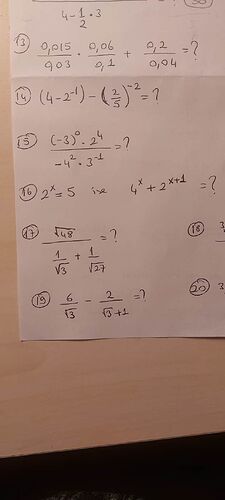 4 - 1/2 · 3
13) 0,015/0,03 · 0,06/0,1 + 0,2/0,04 = ?
14) (4 - 2⁻¹) - (2/5)⁻² = ?
15) (-3)⁰ · 2⁴ / -4² · 3⁻¹ = ?
16) 2ˣ = 5 ise 4ˣ + 2ˣ⁺¹ = ?
17) √48 / (1/√3 + 1/√27) = ?
18)
19) 6/√3 - 2/(√3+1) = ?
20)